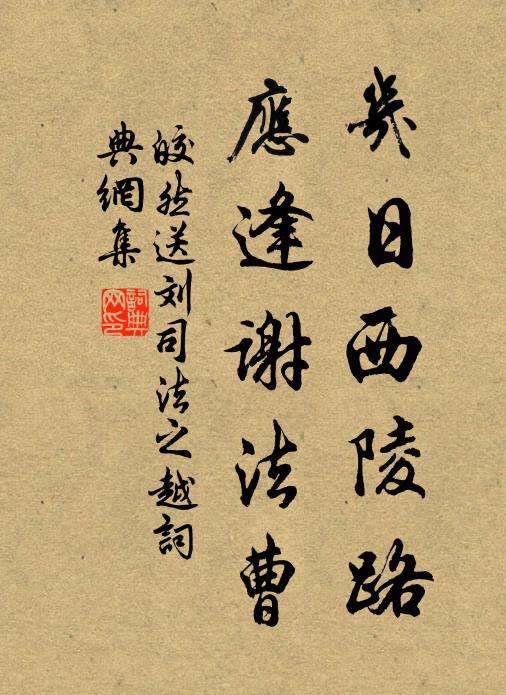 幾日西陵路
應逢謝法曹
皎然送刘司法之越詞
典網集
詞典
网印